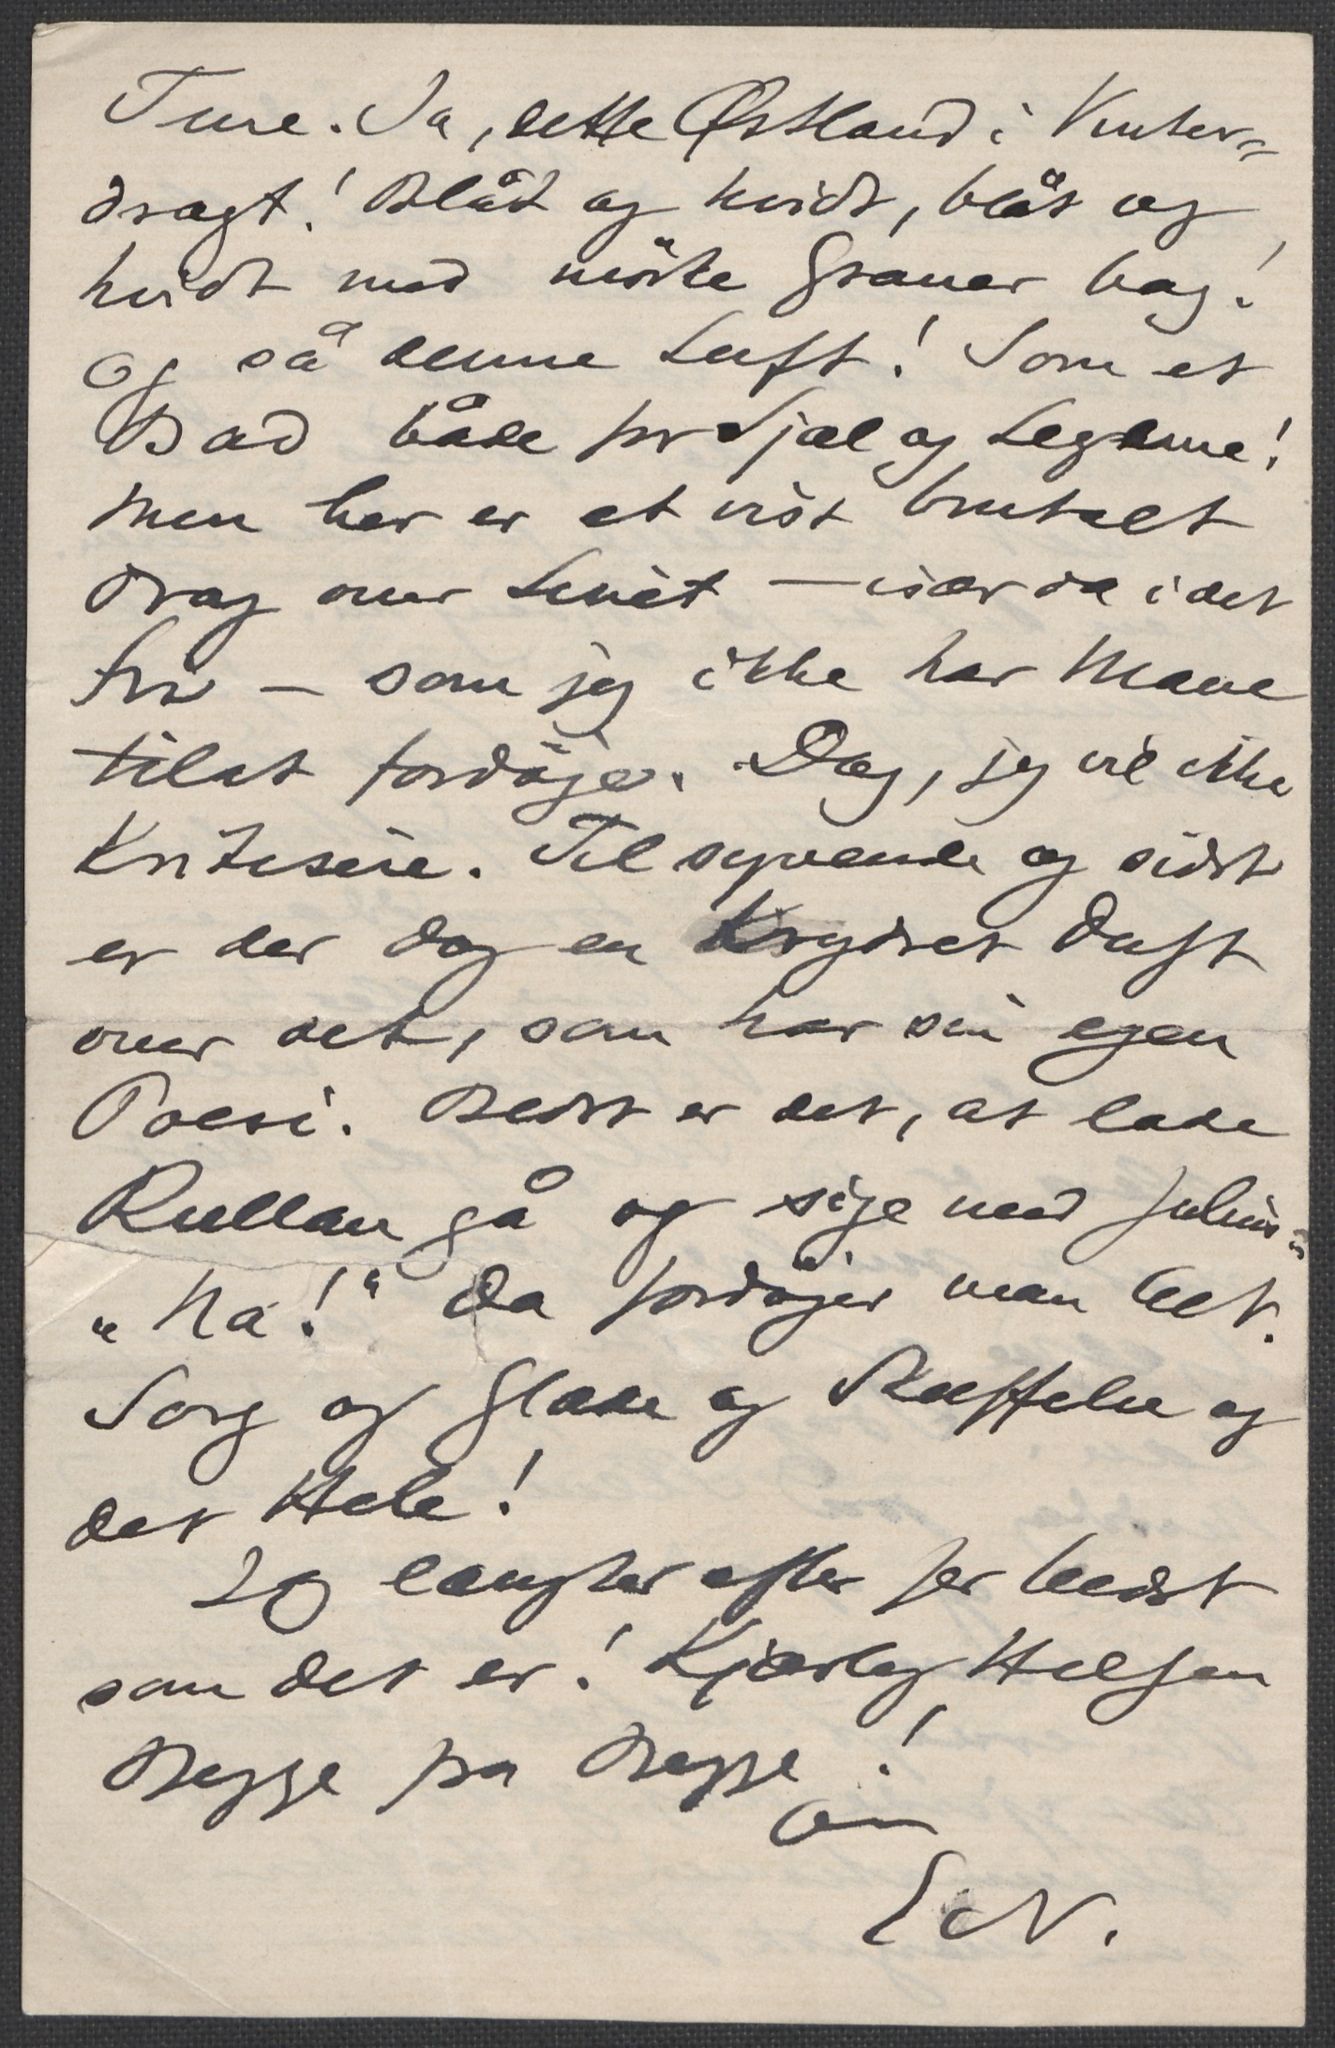 Ture. Ja, dette Østland i Vinter-
dragt! Blåt og hvidt, blåt og
hvidt med mörke Graner bag!
Og så denne Luft! Som et
Bad både for Sjæl og Legeme!
Men her er et vist brutalt
Drag over Livet – især da i det
fri – som jeg ikke har Mave
til at fordöje. Dog, jeg vil ikke
kritisere. Til syvende og sidst
er der dog en krydret Duft
over det, som har sin egen
Poesi. Bedst er det, at lade
Rullan gå og sige med Julius:
„Na!“ Da fordöjer man let.
Sorg og Glæde og Skuffelse og
det Hele!
Jeg længter efter Jer bedst
som det er! Kjærlig Hilsen
Begge fra Begge!
E.